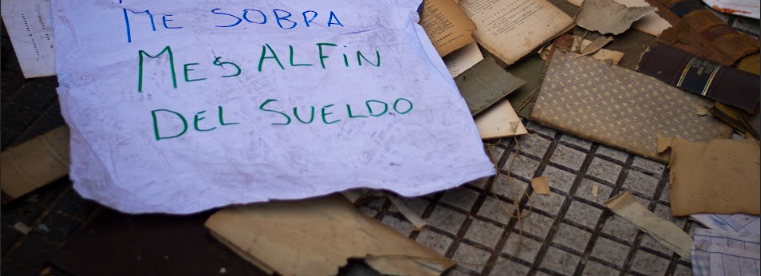 ME SOBRA
MES ALFiN
DEL SUELDO